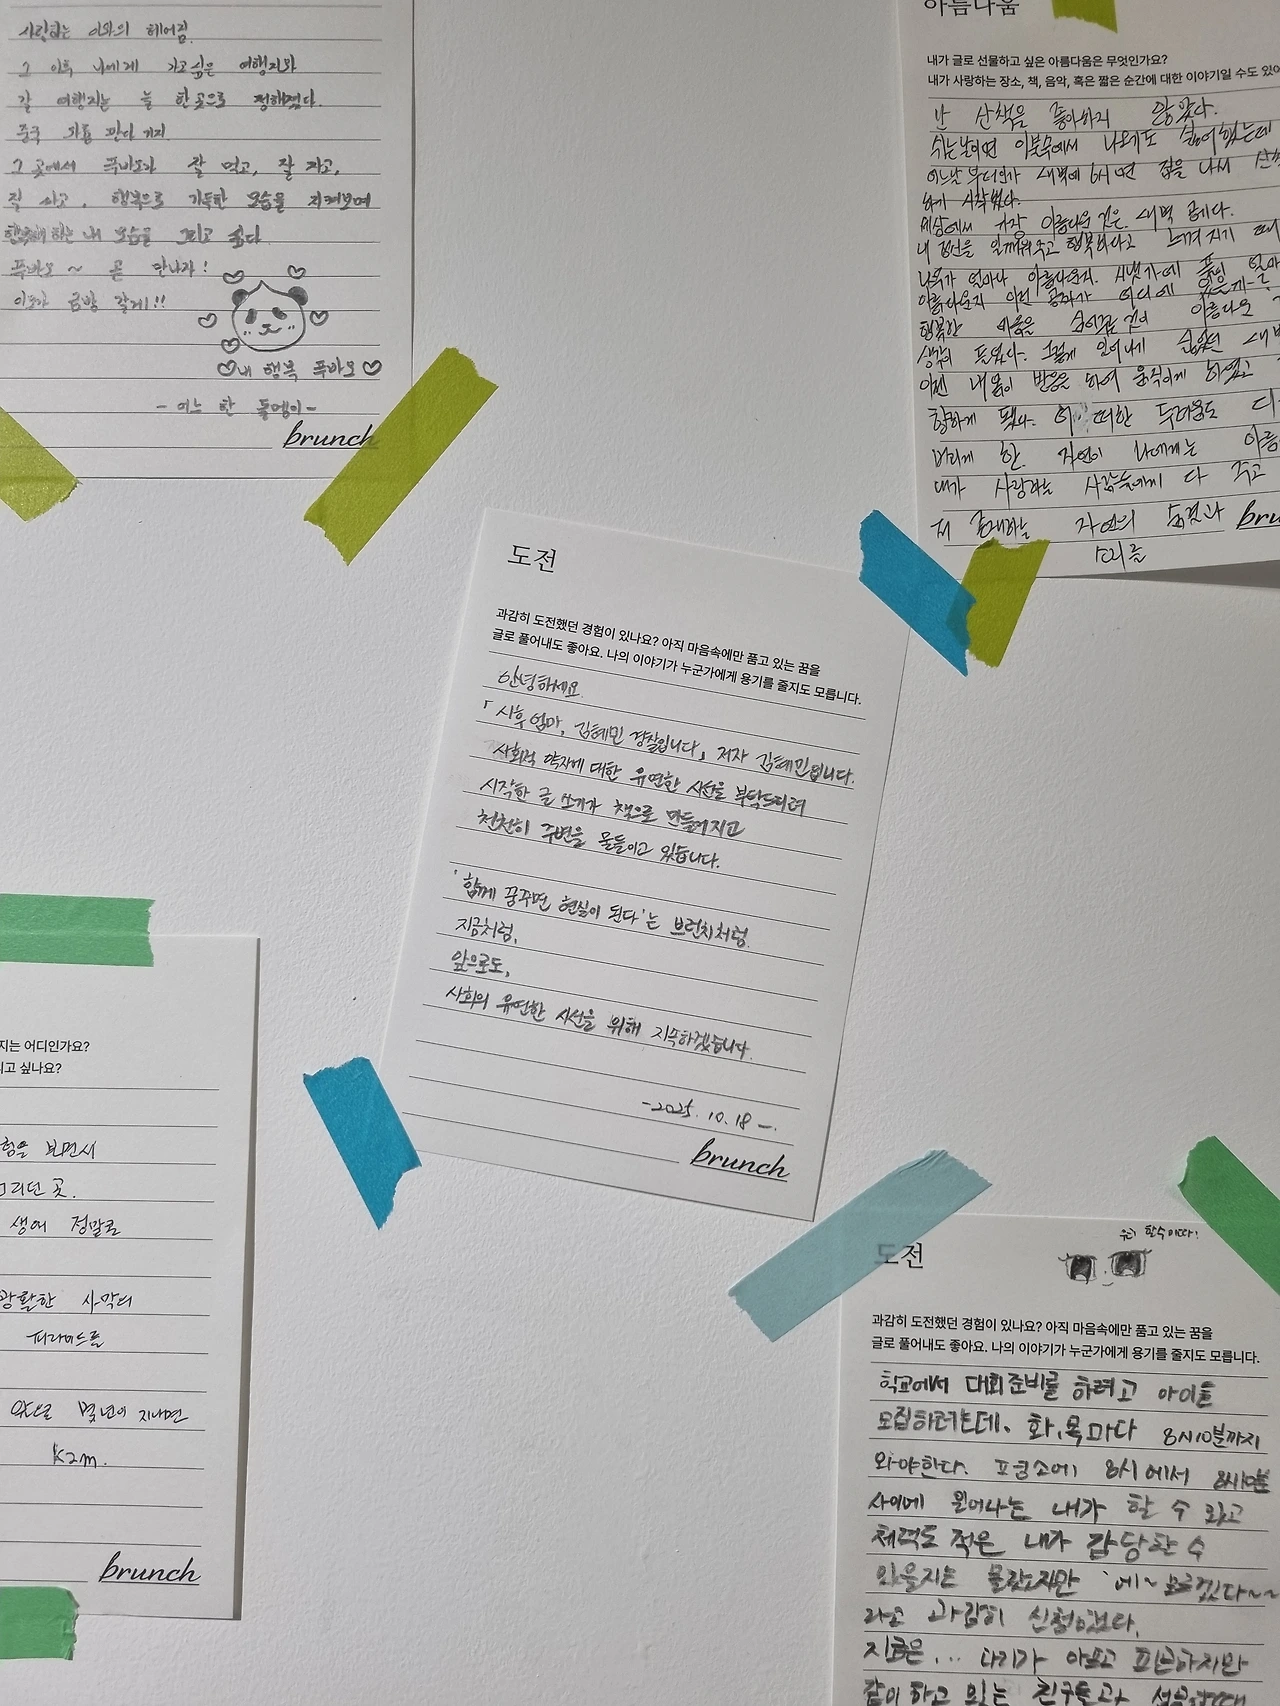 사랑하는 이와의 헤어짐.
그 이후 나에게 가고싶은 여행지와
갈 여행지는 늘 한 곳으로 정해졌다.
중국 판다 기지.
그 곳에서 푸바오가 잘 먹고, 잘 자고,
잘 싸고, 행복으로 가득한 모습을 지켜보며
행복해 하는 내 모습을 그리고 싶다
푸바오 ~ 곧 만나자!
이모가 금방 갈게!!
내 행복 푸바오
- 어느 한 돌멩이 -
brunch
아름다움
내가 글로 선물하고 싶은 아름다움은 무엇인가요?
내가 사랑하는 장소, 책, 음악, 혹은 짧은 순간에 대한 이야기일 수도 있어
난 산책을 좋아하지 않았다.
쉬는날이면 이불속에서 나오기도 싫어했는데
어느날 부터인가 새벽에 6시면 집을 나서 산책
하게 시작했다.
세상에서 가장 아름다운 것은 새벽 공기다.
내 정신을 일깨워주고 행복하다고 느껴지기 때
나무가 얼마나 아름다운지. 시냇가에 풀잎 얼마
아름다운지 이런 공기가 어디에 있는가
행복한 마음을 심어준 것이 아름다운
생각이 들었다. 그렇게 일어나기 싫었던 새벽
이젠 내 몸이 반응을 하여 움직이게 하였고
향하게 됐다. 어떠한 두려움도
버리게 한 자연이 나에게는 아름
내가 사랑하는 사람들에게 다 주고
저 존재하는 자연의 숨결과
소리를
brun
도전
과감히 도전했던 경험이 있나요? 아직 마음속에만 품고 있는 꿈을
글로 풀어내도 좋아요. 나의 이야기가 누군가에게 용기를 줄지도 모릅니다.
안녕하세요.
「시후엄마, 김혜민 경찰입니다」 저자 김혜민입니다.
사회적 약자에 대한 유연한 시선을 부탁드리려
시작한 글 쓰기가 책으로 만들어지고
천천히 주변을 물들이고 있습니다.
'함께 꿈꾸면 현실이 된다'는 브런치처럼.
지금처럼,
앞으로도,
사회의 유연한 시선을 위해 지속하겠습니다.
-2025. 10. 18 -.
brunch
지는 어디인가요?
리고 싶나요?
험을 보면서
그리던 곳.
생에 정말로
광활한 사막의
피라미드를
앞으로 몇년이 지나면
brunch
도전
우리 할수이따!
과감히 도전했던 경험이 있나요? 아직 마음속에만 품고 있는 꿈을
글로 풀어내도 좋아요. 나의 이야기가 누군가에게 용기를 줄지도 모릅니다.
학교에서 대회준비를 하려고 아이들
모집하려는데, 화,목마다 8시10분까지
와야한다. 평소에 8시에서 8시10분
사이에 일어나는 내가 할 수 있고
체력도 적은 내가 감당할 수
있을지는 몰랐지만 '에~ 모르겠다~~
라고 과감히 신청했다.
지금은... 다리가 아프고 피곤하지만
같이 하고 있는 친구들과